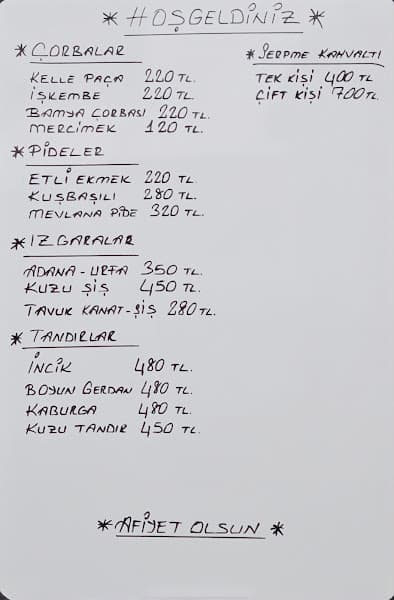 * HOŞGELDİNİZ *
* ÇORBALAR
KELLE PAÇA 220 TL.
İŞKEMBE 220 TL.
BAMYA ÇORBASI 220 TL.
MERCİMEK 120 TL.
* PİDELER
ETLİ EKMEK 220 TL.
KUŞBAŞILI 280 TL.
MEVLANA PİDE 320 TL.
* IZGARALAR
ADANA - URFA 350 TL.
KUZU ŞİŞ 450 TL.
TAVUK KANAT - ŞİŞ 280 TL.
* TANDIRLAR
İNCİK 480 TL.
BOYUN GERDAN 480 TL.
KABURGA 480 TL.
KUZU TANDIR 450 TL.
* SERPME KAHVALTI
TEK KİŞİ 400 TL
ÇİFT KİŞİ 700 TL.
* AFİYET OLSUN *